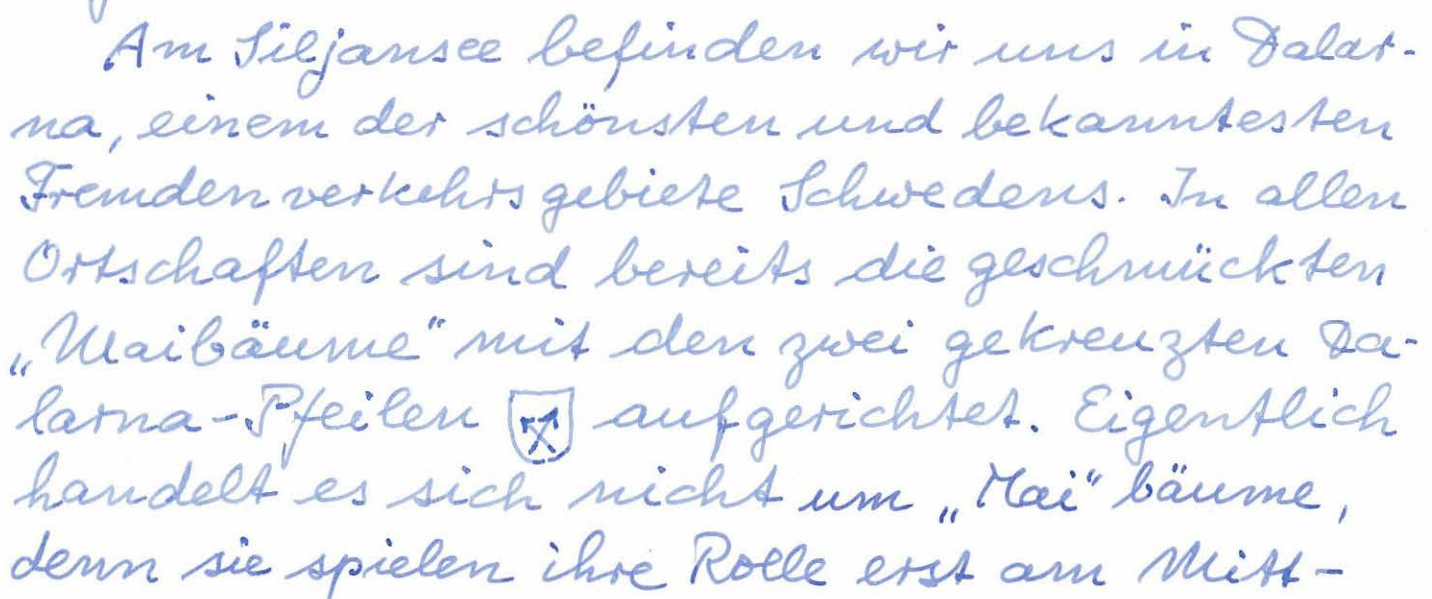 Am Siljansee befinden wir uns in Dalar-
na, einem der schönsten und bekanntesten
Fremdenverkehrsgebiete Schwedens. In allen
Ortschaften sind bereits die geschmückten
„Maibäume“ mit den zwei gekreuzten Da-
larna-Pfeilen aufgerichtet. Eigentlich
handelt es sich nicht um „Mai“ bäume,
denn sie spielen ihre Rolle erst am Mitt-